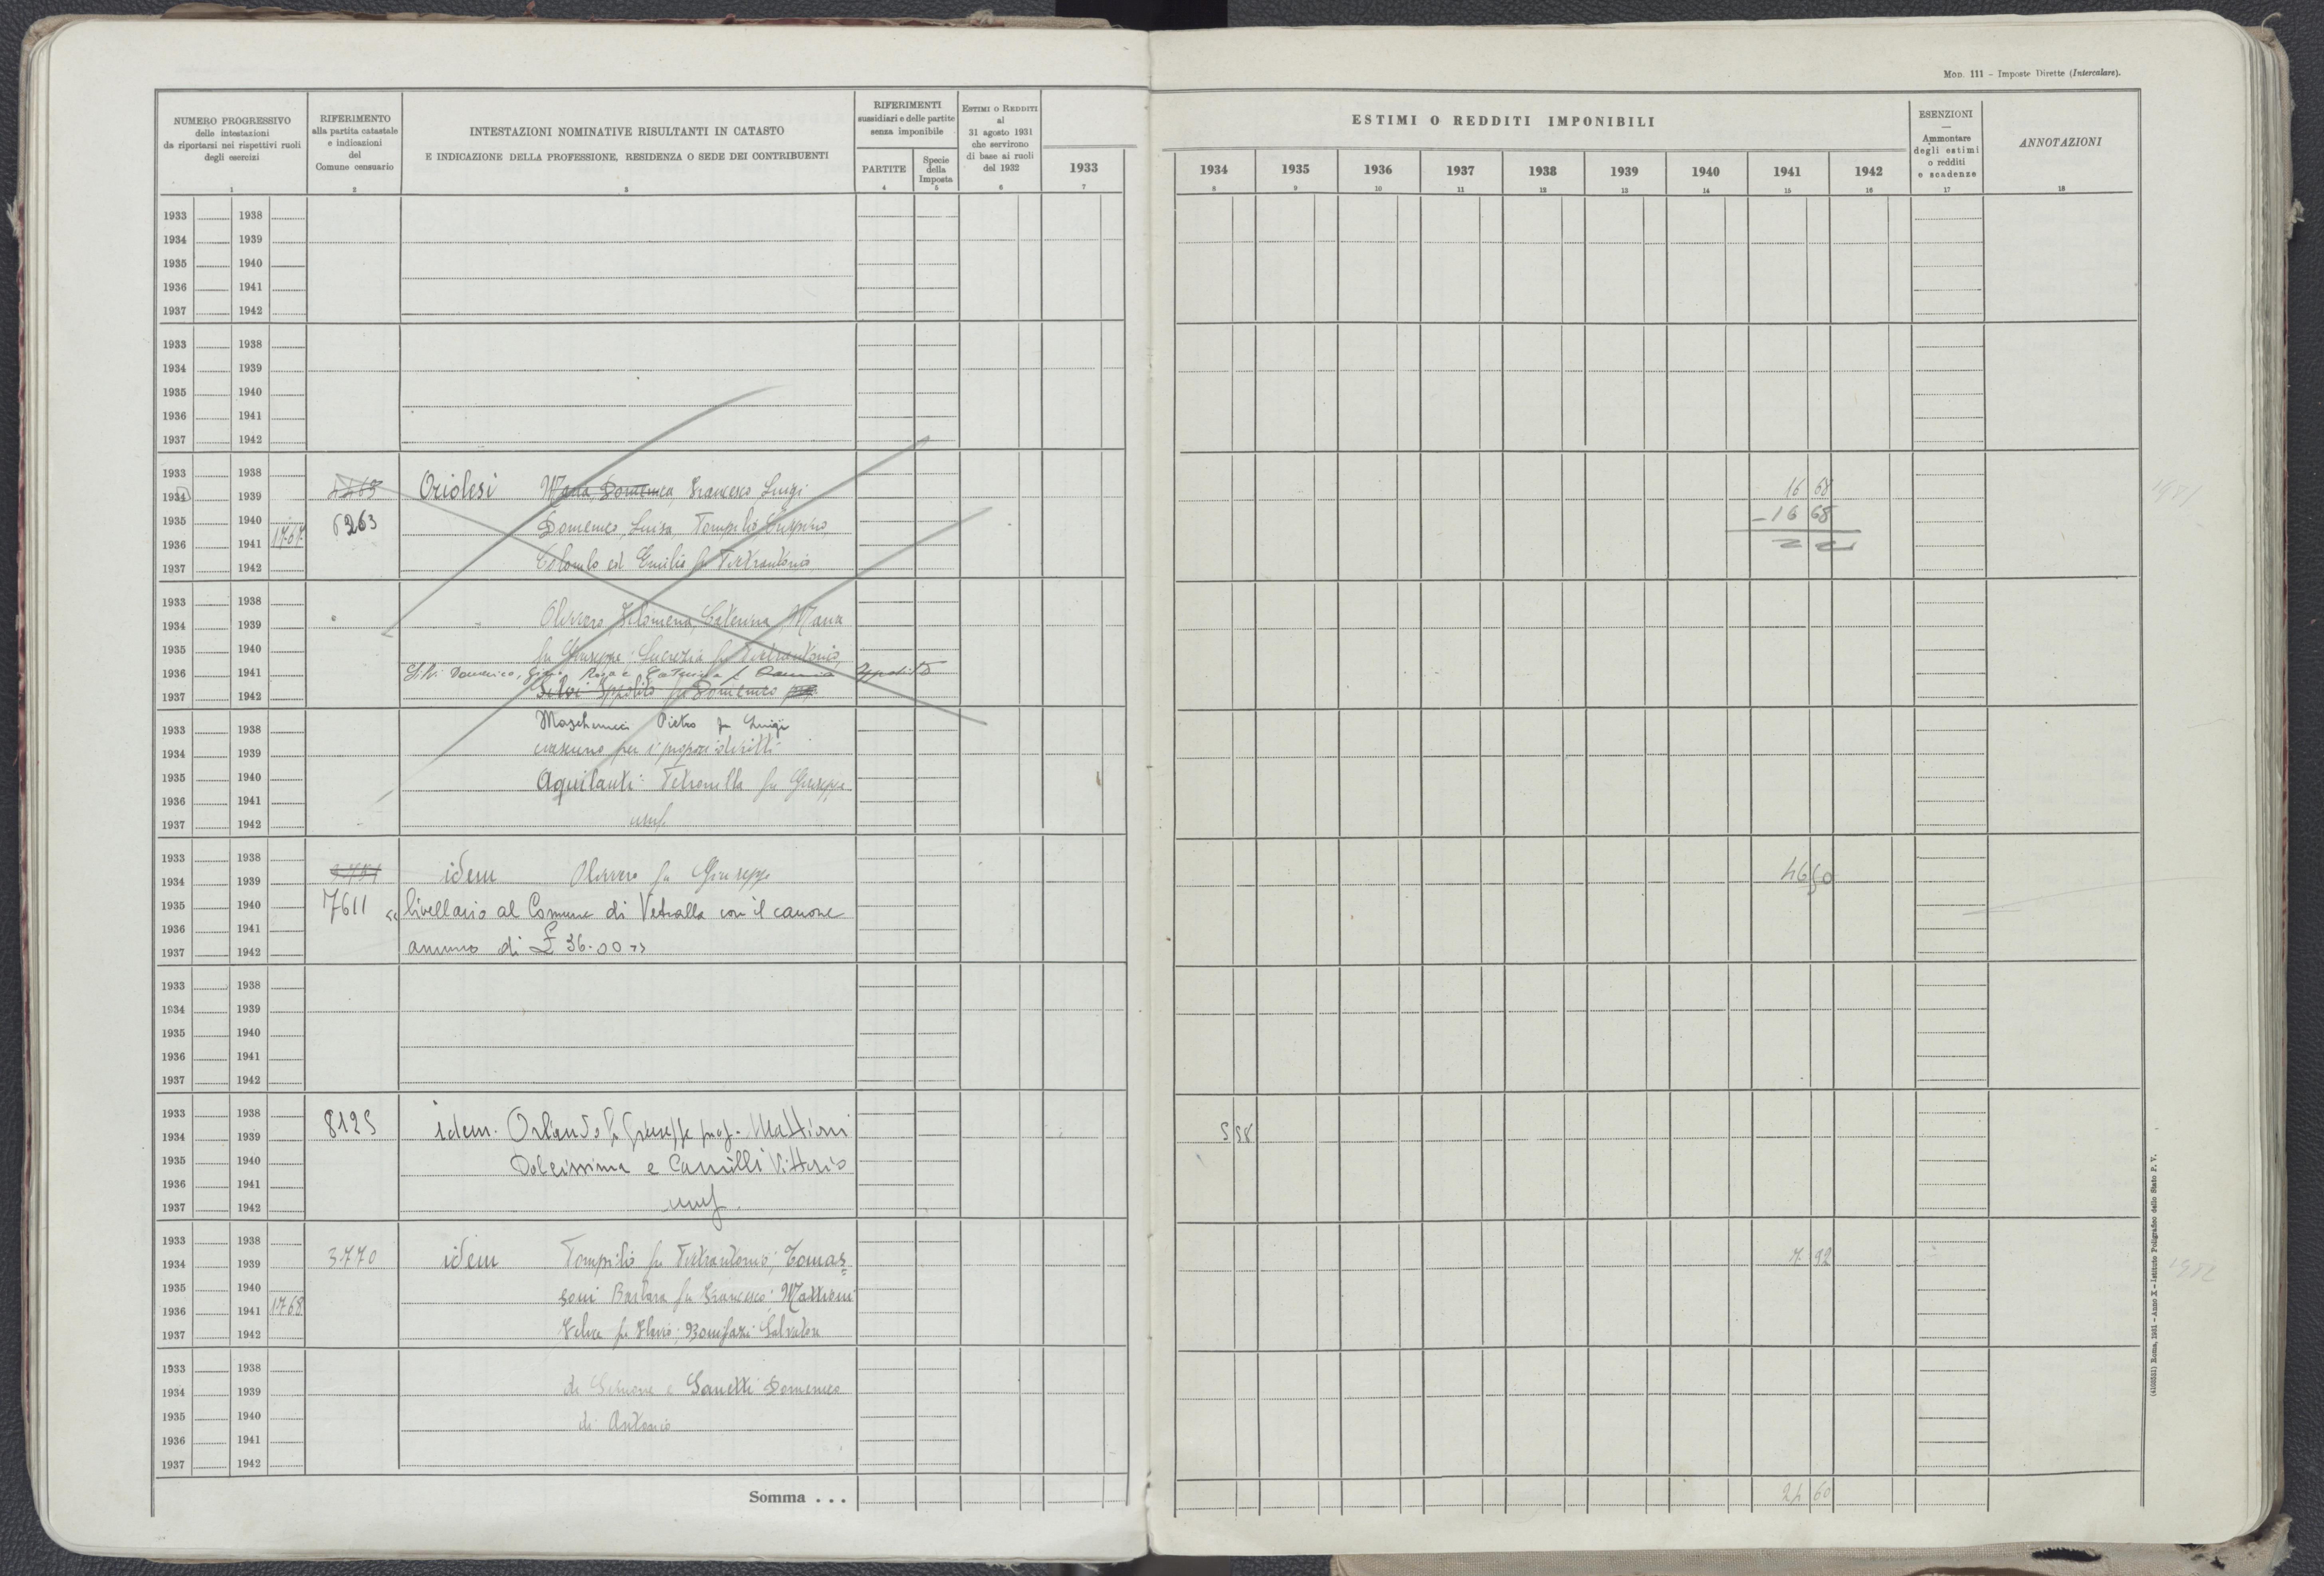 MOD. 111 - Imposte Dirette (Intercalare).
NUMERO PROGRESSIVO
delle intestazioni
da riportarsi nei rispettivi ruoli
degli esercizi
1
RIFERIMENTO
alla partita catastale
e indicazioni
del
Comune censuario
2
INTESTAZIONI NOMINATIVE RISULTANTI IN CATASTO
E INDICAZIONE DELLA PROFESSIONE, RESIDENZA O SEDE DEI CONTRIBUENTI
3
RIFERIMENTI
sussidiari e delle partite
senza imponibile
PARTITE
4
Specie
della
Imposta
5
ESTIMI O REDDITI
al
31 agosto 1931
che servirono
di base ai ruoli
del 1932
6
1933
7
ESTIMI O REDDITI IMPONIBILI
1934 1935 1936 1937 1938 1939 1940 1941 1942
8 9 10 11 12 13 14 15 16
ESENZIONI
—
Ammontare
degli estimi
o redditi
e scadenze
17
ANNOTAZIONI
18
1933 1938
1934 1939
1935 1940
1936 1941
1937 1942
1933 1938
1934 1939
1935 1940
1936 1941
1937 1942
1933 1938
1934 1939 Oriolesi Maria, Domenica, Francesco, Luigi 16 68
1935 1940 6263 Domenico, Luisa, Pompilio, Crispino, -16 68
1936 1941 1767
1937 1942 Colombo ed Emilio fu Pietrantonio
1933 1938
1934 1939 " Oliviero, Filomena, Caterina, Maria
1935 1940 fu Giuseppe; Lucrezia fu Pietrantonio,
1936 1941 Silvi Domenico, Rosa e Caterina Ippolito
1937 1942 Silvi Ippolito fu Domenico
1933 1938 Pietro fu Luigi
1934 1939 ciascuno per i propri diritti
1935 1940 Aquilanti Petronilla fu Giuseppe
1936 1941
1937 1942 usuf.
1933 1938
1934 1939 idem Oliviero fu Giuseppe 46 50
1935 1940 7611 livellario al Comune di Vetralla con il canone
1936 1941
1937 1942 annuo di £ 36.00
1933 1938
1934 1939
1935 1940
1936 1941
1937 1942
1933 1938 8125
1934 1939 idem. Orlando fu Giuseppe Mattioni 5 58
1935 1940 Dolcissima e Camilli Vittorio
1936 1941
1937 1942 usuf.
1933 1938
1934 1939 3770 idem Pompilio fu Pietrantonio; Tomas= 7 92
1935 1940 soni Barbara fu Francesco; Mattioni
1936 1941 1768
1937 1942 Felice fu Flavio; Bonifazi Salvatore
1933 1938
1934 1939 di Simone e Sanetti Domenico
1935 1940 di Antonio
1936 1941
1937 1942
Somma . . . 24 60
(4103521) Roma, 1931 - Anno X - Istituto Poligrafico dello Stato P. V.